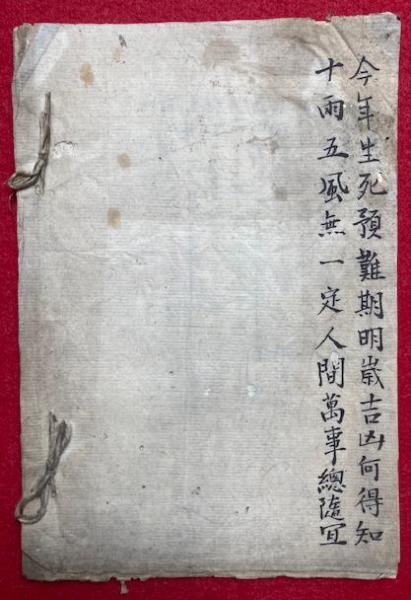 今年生死預難期明歲吉凶何得知
十雨五風無一定人間萬事總隨宜